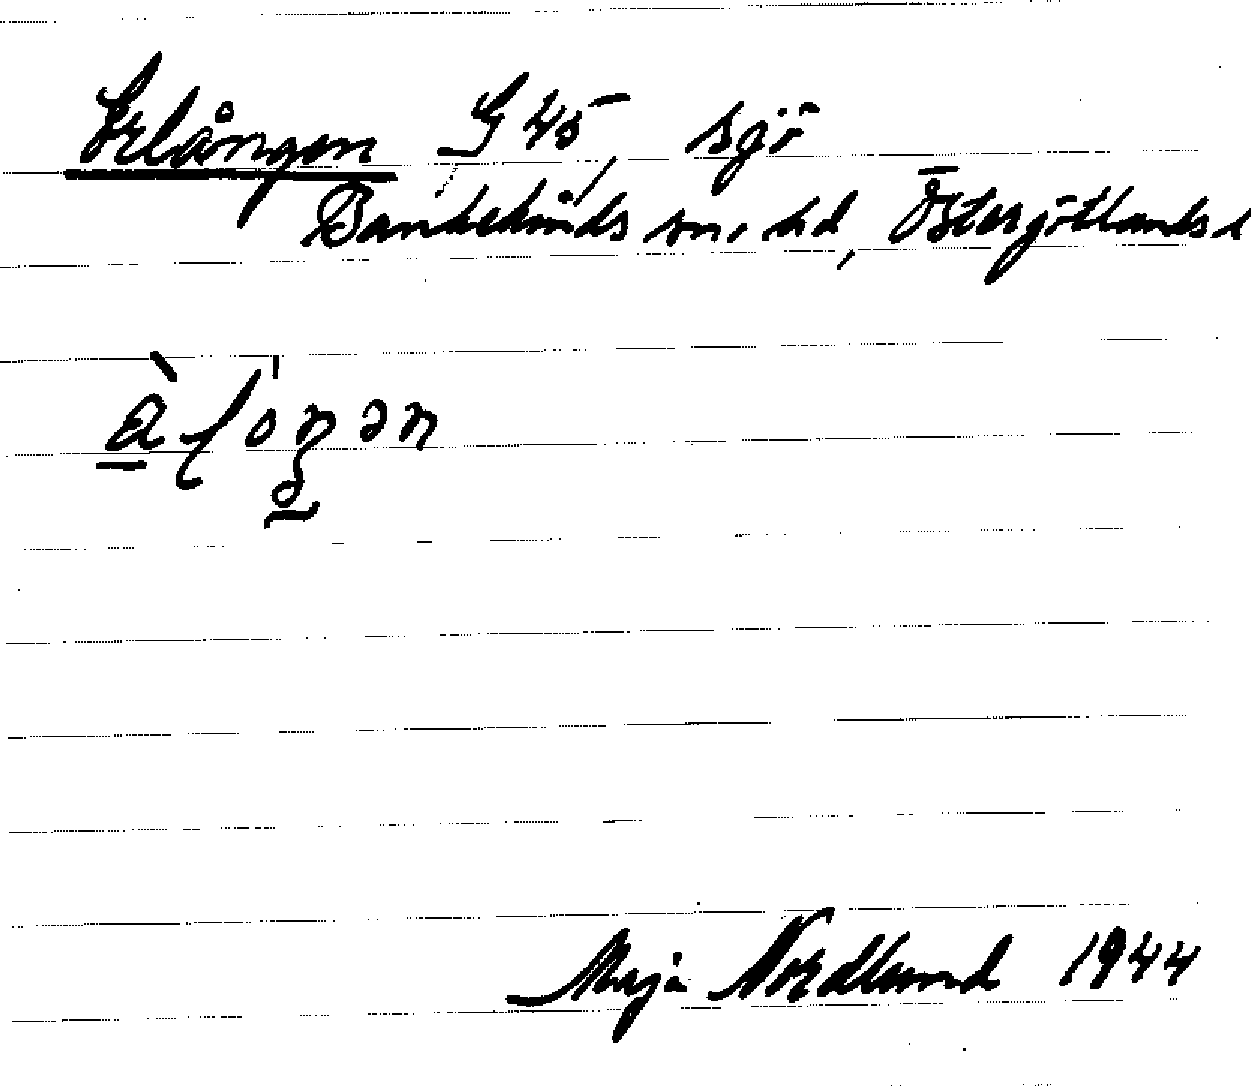 Erlången G 45, sjö
Bankekinds sn, hd, Östergötlands l
Maja Nordlund 1944